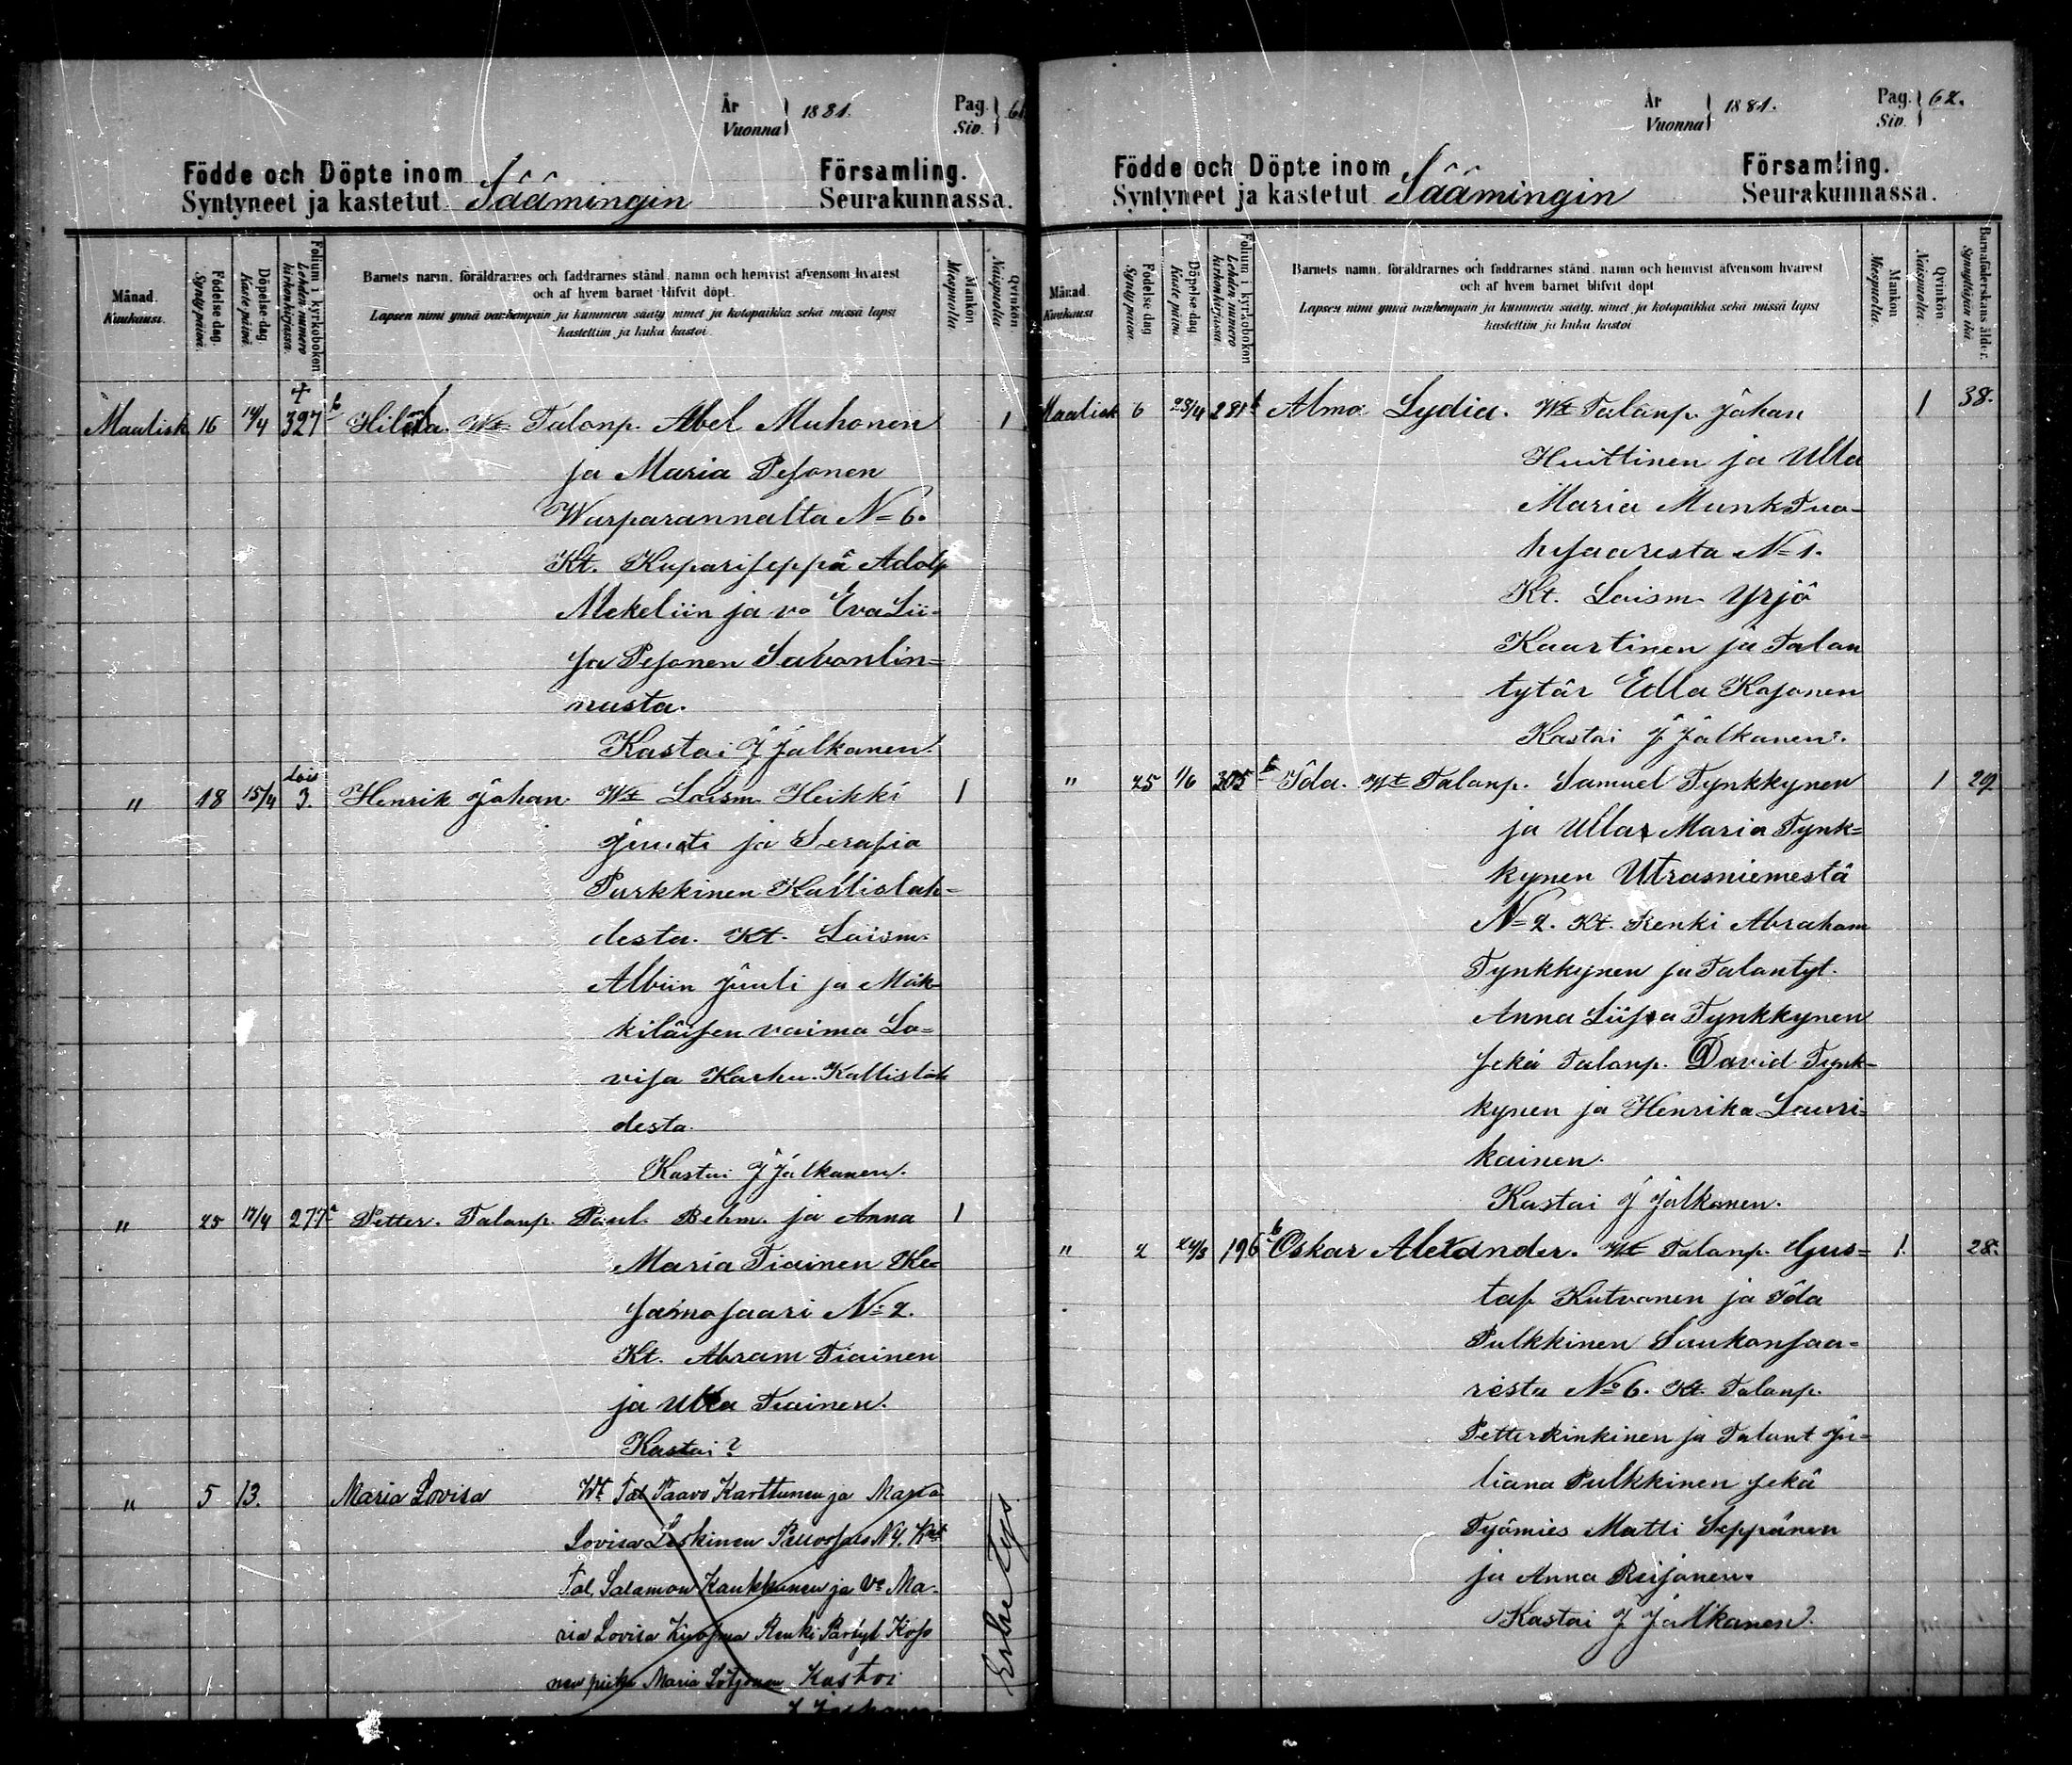 År
Vuonna } 1881.
Pag.
Siv. } 61
Födde och Döpte inom
Syntyneet ja kastetut Säämingin
Församling.
Seurakunnassa.
Månad.
Kuukausi.
Födelse dag.
Syntypäivä.
Döpelse-dag.
Kaste päivä.
Folium i kyrkoboken
Lehden numero kirkonkirjassa.
Barnets namn, föräldrarnes och faddrarnes stånd, namn och hemvist äfvensom hvarest
och af hvem barnet blifvit döpt.
Lapsen nimi ynnä vanhempain ja kummein sääty nimet ja kotopaikka sekä missä lapsi
kastettiin ja kuka kastoi.
Mankön
Miespuolta
Qvinkön
Naispuolta
Maalisk 16 14/4 327 b Hilma. Wt Talonp. Abel Muhonen 1
ja Maria Pesonen
Warparannalta N=6.
Kt. Kupariseppä Adolf
Mekeliin ja vo Eva Lii-
sa Pesonen Savonlin=
nasta.
Kastoi J Jalkanen.
" 18 15/4 lois 3. Henrik Johan Wt Loism Heikki 1
Juuti ja Serafia
Purkkinen Kallislah=
desta. Kt. Loism.
Albin Juuti ja Mäk-
kiläisen vaimo Lo=
visa Karhu Kallislah
desta.
Kastoi J Jalkanen.
" 25 17/4 277 a Petter. Talonp. Paul Behm. ja Anna 1
Maria Tiainen Ke=
samosaari N=2.
Kt. Abram Tiainen
ja Ulla Tiainen.
Kastoi?
" 5 13. Maria Lovisa Wt Tal Paavo Karttunen ja Maria
Lovisa Leskinen
Tal. Salamon Kaukkunen ja Vo Ma-
ria Lovisa Renki
Maria Kastoi
År
Vuonna } 1881.
Pag.
Siv. } 62.
Födde och Döpte inom
Syntyneet ja kastetut Säämingin
Församling.
Seurakunnassa.
Månad.
Kuukausi
Födelse-dag
Syntypäivä.
Döpelse-dag.
Kaste päivä.
Folium i kyrkoboken
Lehden numero kirkonkirjassa.
Barnets namn, föräldrarnes och faddrarnes stånd, namn och hemvist äfvensom hvarest
och af hvem barnet blifvit döpt
Lapsen nimi ynnä vanhempain ja kummein sääty, nimet ja kotopaikka sekä missä lapsi
kastettiin ja kuka kastoi
Mankön
Miespuolta.
Qvinkön
Naispuolta.
Barnaföderskans ålder.
Synnyttäjän ikä.
Maalisk 6 23/4 281 b Alma Lydia. Wt Talonp. Johan 1 38.
Huittinen ja Ulla
Maria Munk Tuo-
hisaaresta N=1.
Kt. Loism Yrjö
Kaartinen ja Talon
tytär Edla Kosonen
Kastoi J Jalkanen.
" 25 1/6 305 b Ida. Wt Talonp. Samuel Tynkkynen 1 29
ja Ulla Maria Tynk=
kynen Utrasniemestä
N=2. Kt. Renki Abraham
Tynkkynen ja Talontyt.
Anna Liisa Tynkkynen
sekä Talonp. David Tynk-
kynen ja Henrika Lauri-
kainen.
Kastoi J Jalkanen.
" 2 24/3 196 b Oskar Alexander. Wt Talonp. Gus= 1. 28.
taf Kutvonen ja Ida
Pulkkinen Saukonsaa-
resta No 6. Kt. Talonp.
Petter Rinkinen ja Talont Ju-
liana Pulkkinen sekä
Työmies Matti Seppänen
ja Anna Reijonen.
Kastoi J Jalkanen.